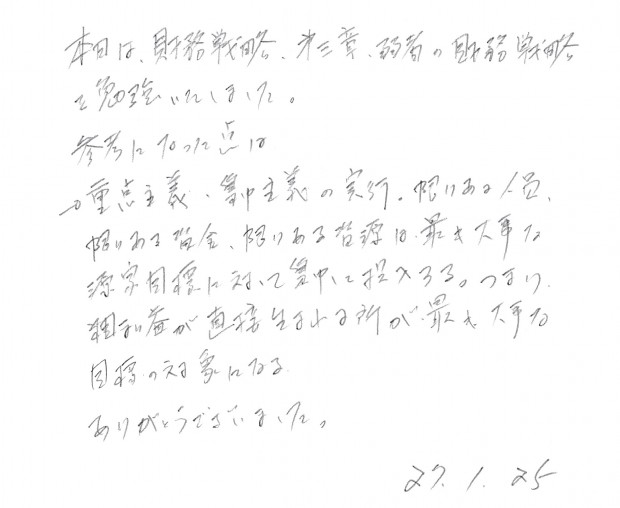 本日は、財務戦略、第三章、弱者の財務戦略
を勉強いたしました。
参考になった点は
→重点主義・集中主義の実行。限りある人員、
限りある資金、限りある資源は、最も大事な
目標に対して集中して投入する。つまり、
粗利益が直接生まれる所が、最も大事な
目標の対象になる
ありがとうございました。
27. 1. 25